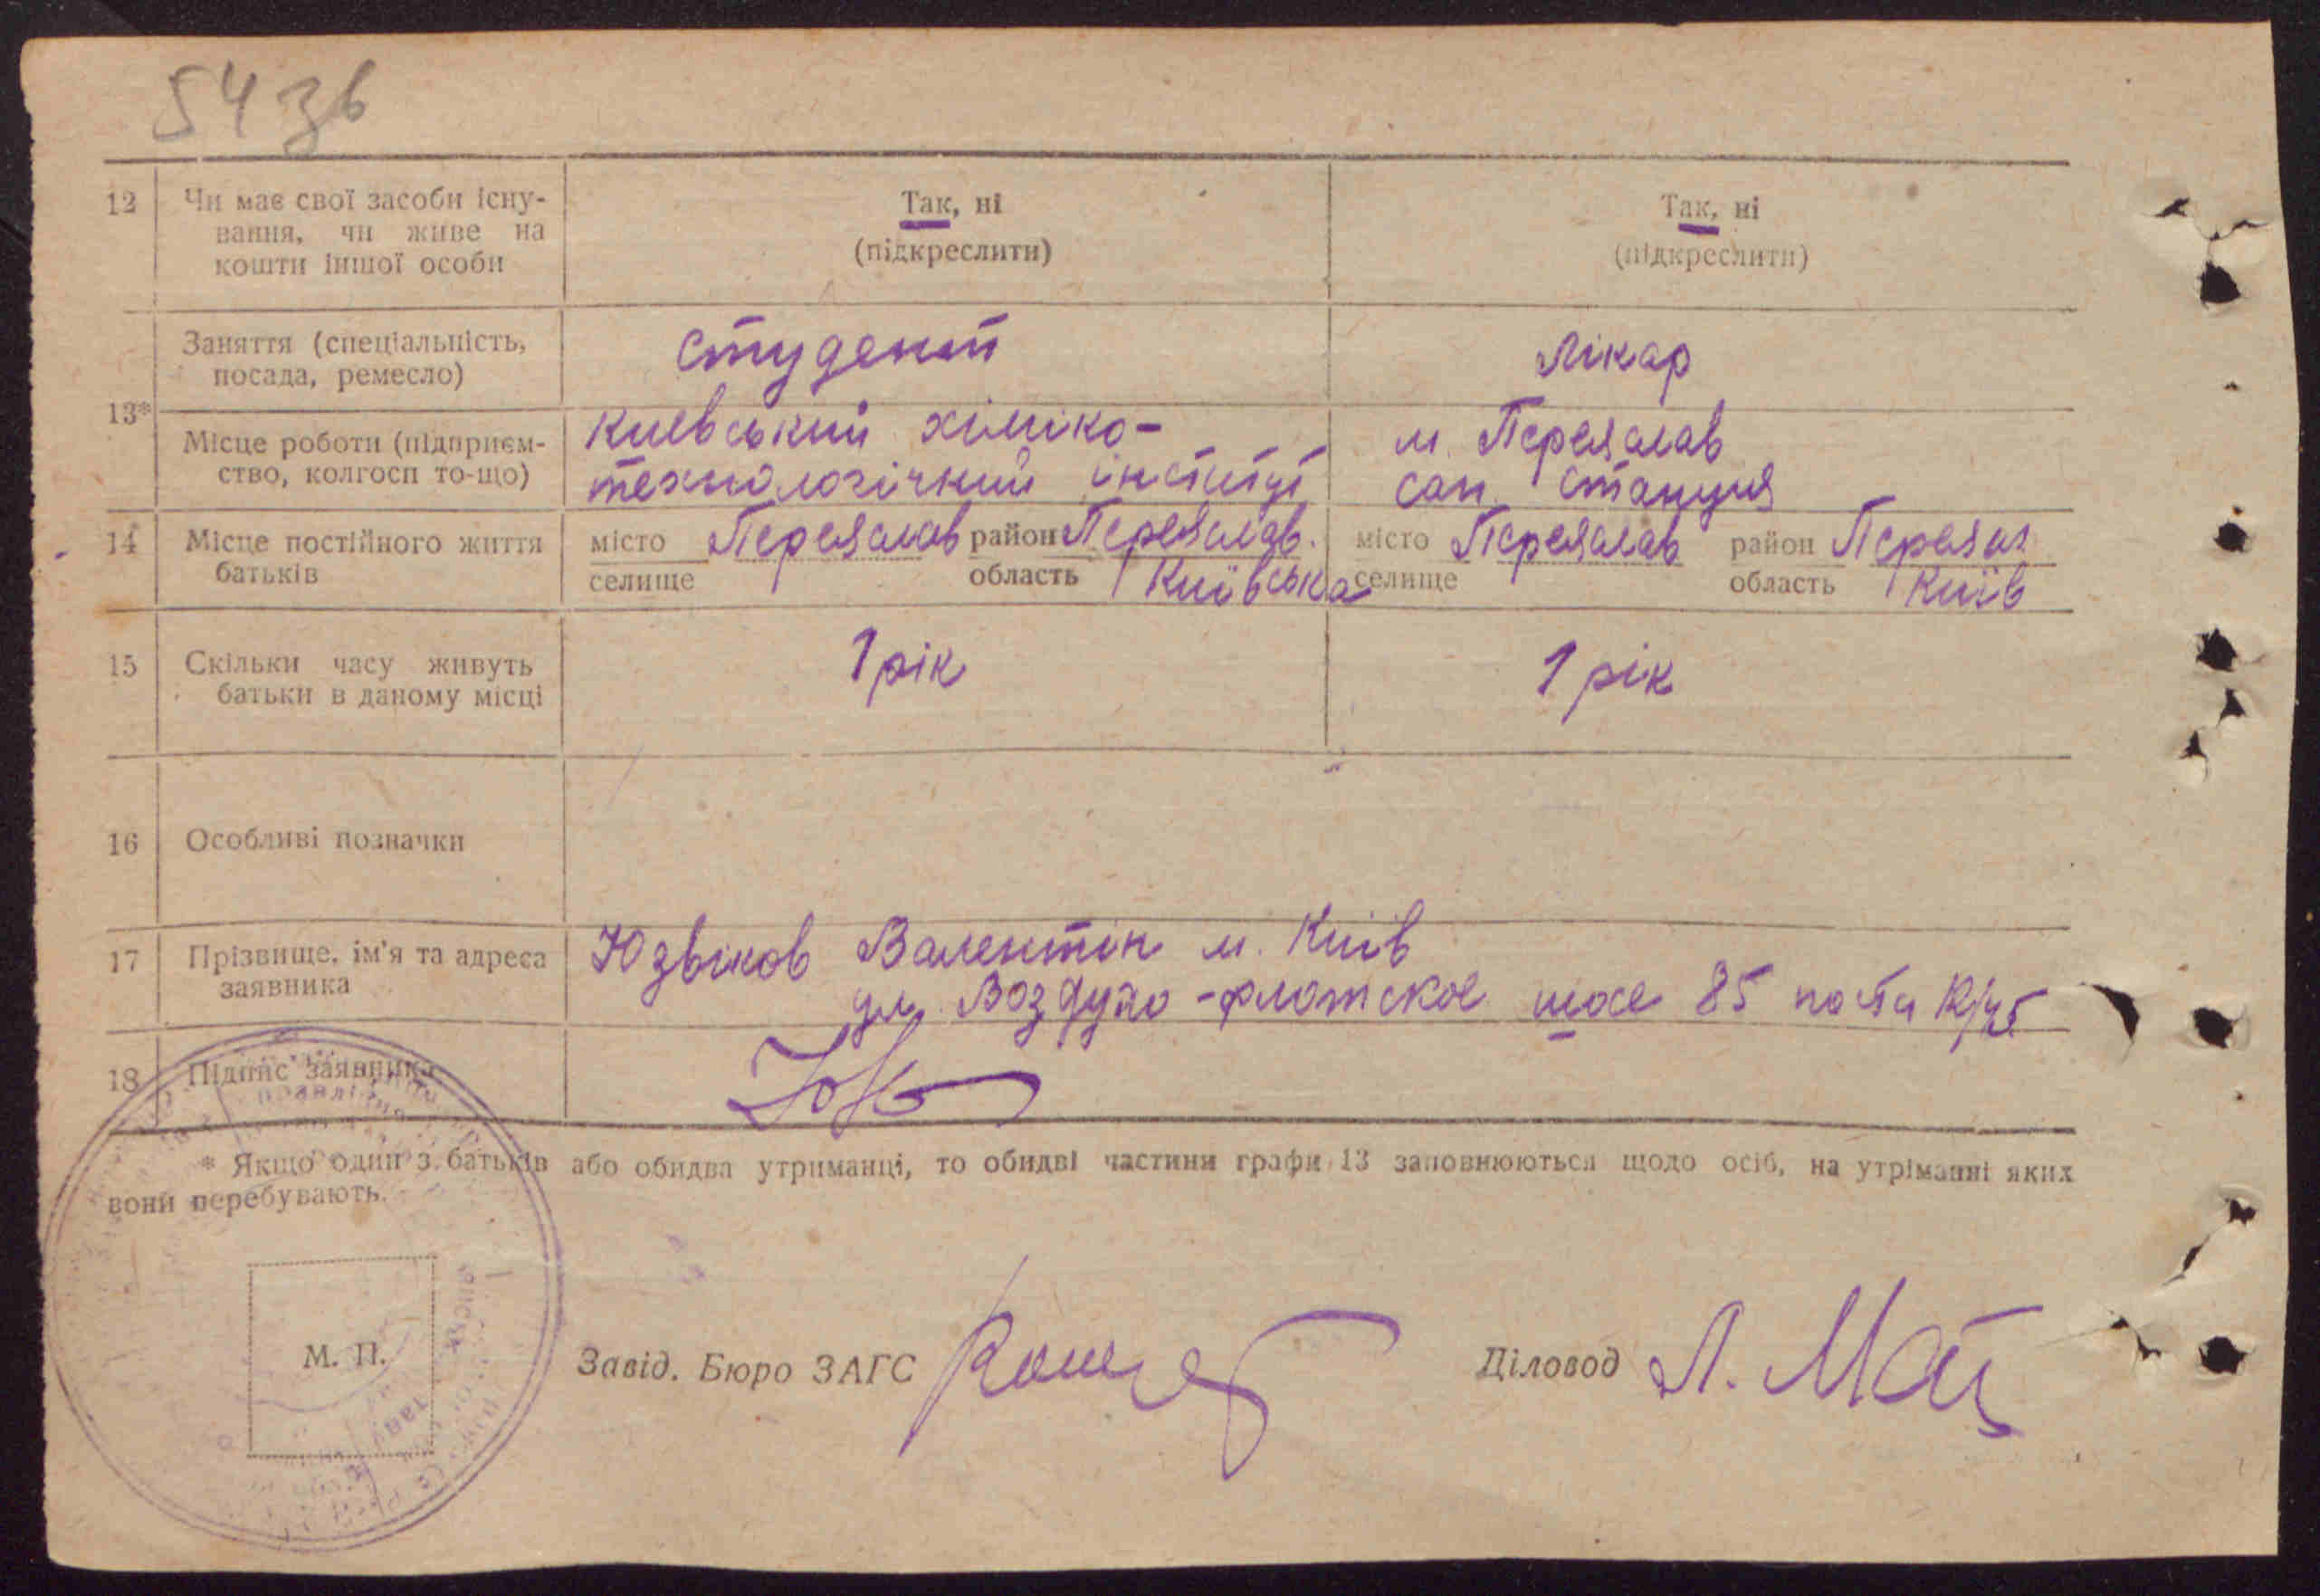 54 зв
12 Чи має свої засоби існу- Так, ні Так, ні
вання, чи живе на (підкреслити) (підкреслити)
кошти іншої особи
Заняття (спеціальність, студент Лікар
посада, ремесло)
13*
Місце роботи (підприєм- Киевський хіміко- м. Переяслав
ство, колгосп то-що) технологічний інститут сан. станция
14 Місце постійного життя місто Переяслав район Переяслав. місто Переяслав район Переясл
батьків селище область Київська селище область Київ
15 Скільки часу живуть 1 рік 1 рік
батьки в даному місці
16 Особливі позначки
17 Прізвище, ім'я та адреса Юзвіков Валентін м. Київ
заявника ул. Воздухо-флотское шосе 85
18 Підпис заявника
* Якщо один з батьків або обидва утриманці, то обидві частини графи 13 заповнюються щодо осіб, на утріманні яких
вони перебувають.
М. П.
Завід. Бюро ЗАГС Діловод Л.